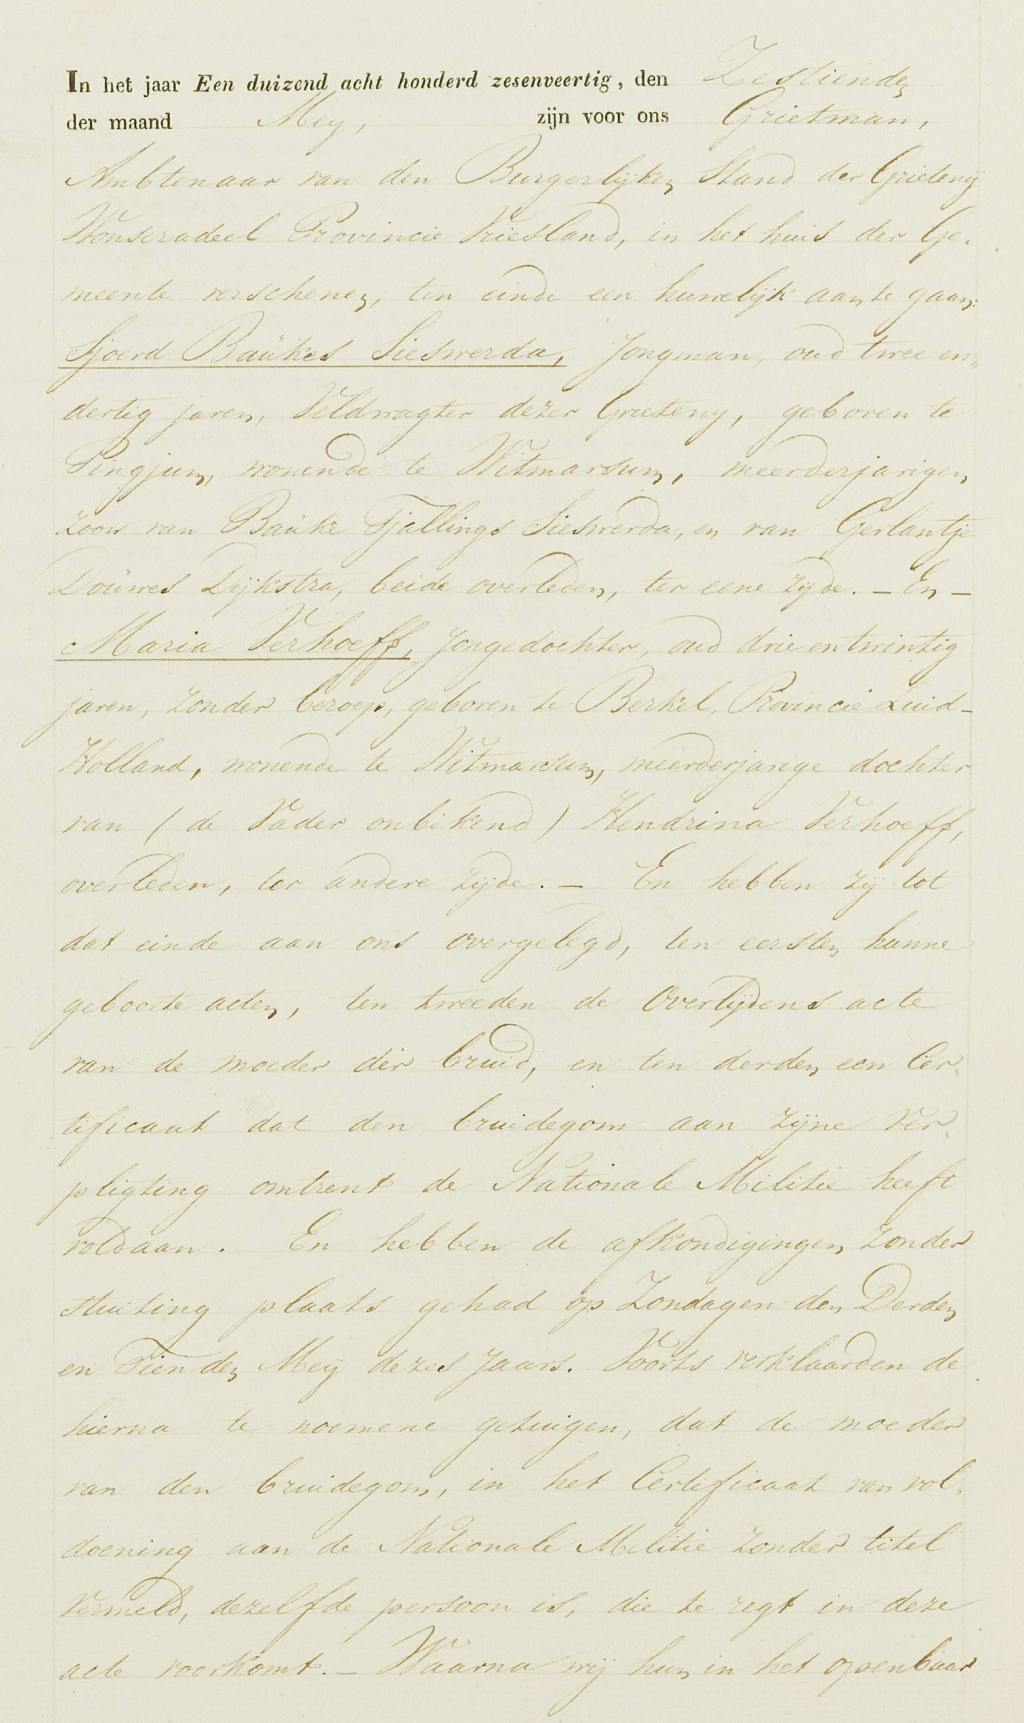 In het jaar Een duizend acht honderd zesenveertig, den Zestienden
der maand Mey, zijn voor ons Grietman,
Ambtenaar van den Burgerlyken Stand der Grieteny
Wonseradeel Provincie Vriesland, in het huis der Ge-
meente verschenen, ten einde een huwelijk aan te gaan:
Sjoerd Baukes Sieswerda, Jongman, oud twee en
dertig jaren, Veldwagter dezer Grieteny, geboren te
Pingjum, wonende te Witmarsum, meerderjarigen
zoon van Bauke Tjallings Sieswerda, en van Gerlantje
Douwes Dijkstra, beide overleden, ter eene zyde. – En –
Maria Verhoeff, Jongedochter, oud drie en twintig
jaren, zonder beroep, geboren te Berkel, Provincie Zuid-
Holland, wonende te Witmarsum, meerderjarige dochter
van (de Vader onbekend) Hendrina Verhoeff,
overleden, ter andere zijde. – En hebben zij tot
dat einde aan ons overgelegd, ten eersten hunne
geboorte acten, ten tweeden de Overlijdens acte
van de moeder der bruid, en ten derden een Cer-
tificaat dat den bruidegom aan zijne Ver-
pligting omtrent de Nationale Militie heeft
voldaan. En hebben de afkondigingen zonder
stuiting plaats gehad op Zondagen den Derden
en Tienden Meij dezes Jaars. Voorts verklaarden de
hierna te noemene getuigen, dat de moeder
van den bruidegom, in het Certificaat van vol-
doening aan de Nationale Militie zonder titel
vermeld, dezelfde persoon is, die te regt in deze
acte voorkomt. – Waarna wij hun in het openbaar